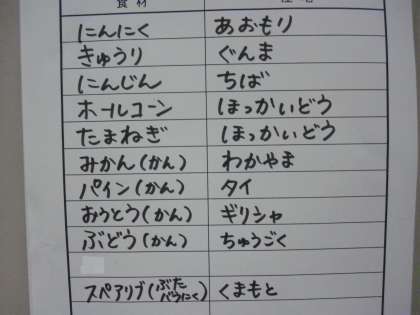 食材 産地
にんにく あおもり
きゅうり ぐんま
にんじん ちば
ホールコーン ほっかいどう
たまねぎ ほっかいどう
みかん(かん) わかやま
パイン(かん) タイ
おうとう(かん) ギリシャ
ぶどう(かん) ちゅうごく
スペアリブ(ぶたバラにく) くまもと